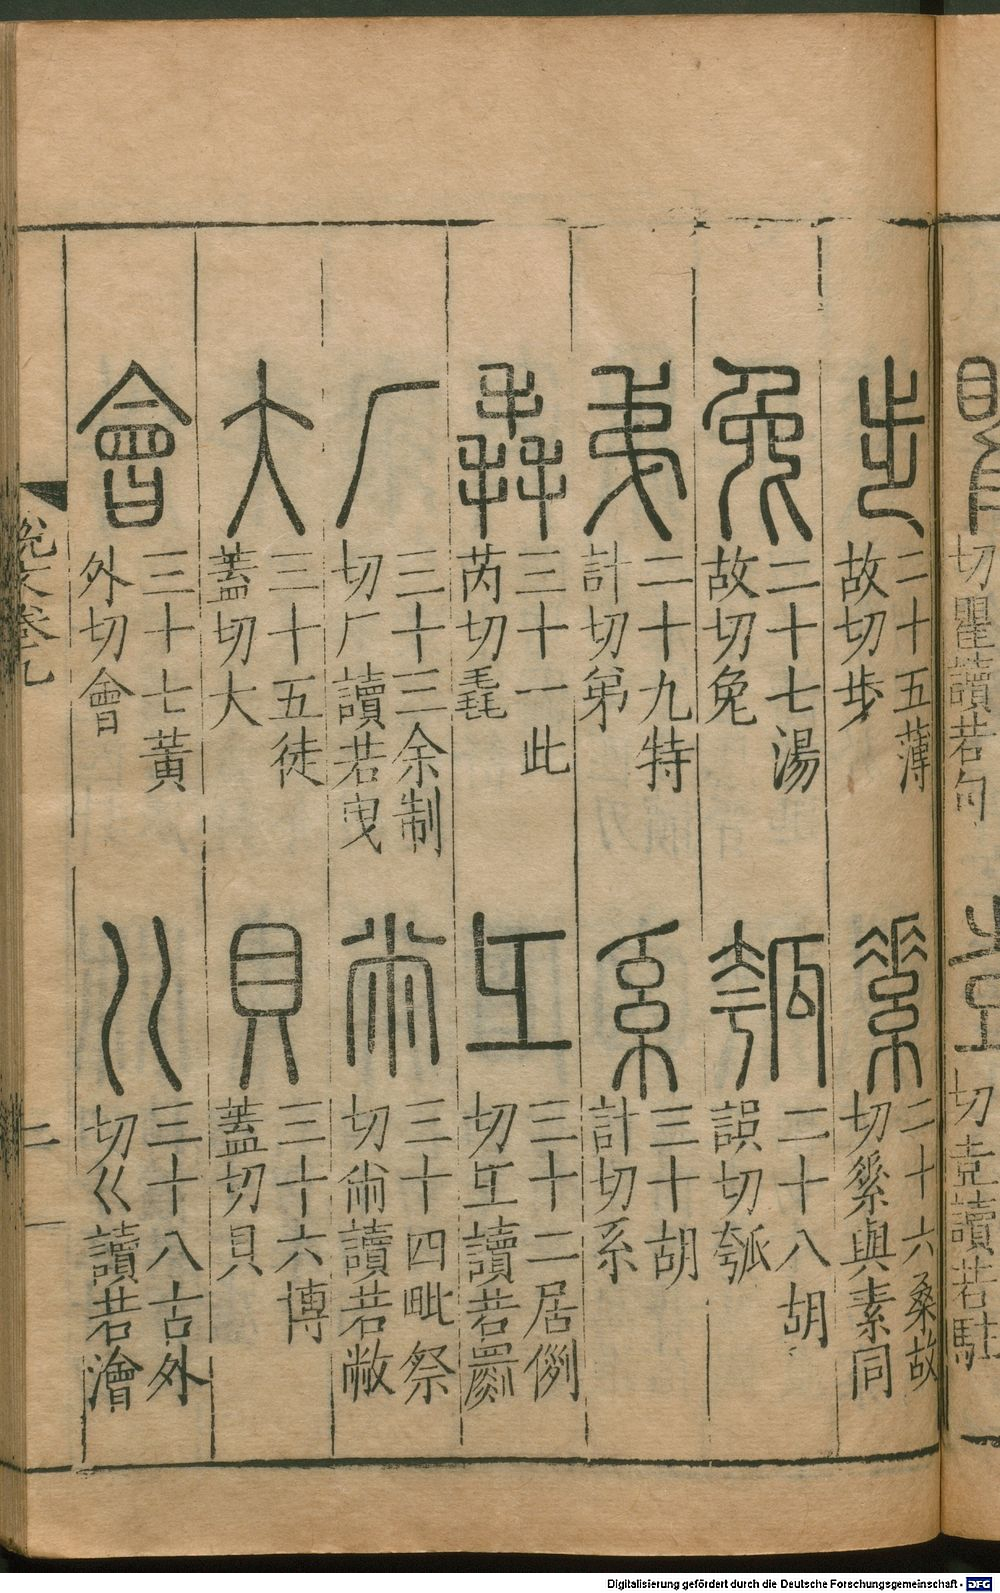 切瞿讀若句
切壴讀若駐
步
二十五薄
故切步
素
二十六桑故
切䋤與素同
兔
二十七湯
故切兔
瓠
二十八胡
誤切瓠
弟
二十九特
計切弟
系
三十胡
計切系
毳
三十一此
芮切毳
彑
三十二居例
切彑讀若罽
厂
三十三余制
切厂讀若曳
㡀
三十四毗祭
切㡀讀若敝
大
三十五徒
蓋切大
貝
三十六博
蓋切貝
會
三十七黃
外切會
巜
三十八古外
切巜讀若澮
說文卷九
二
Digitalisierung gefördert durch die Deutsche Forschungsgemeinschaft - DFG